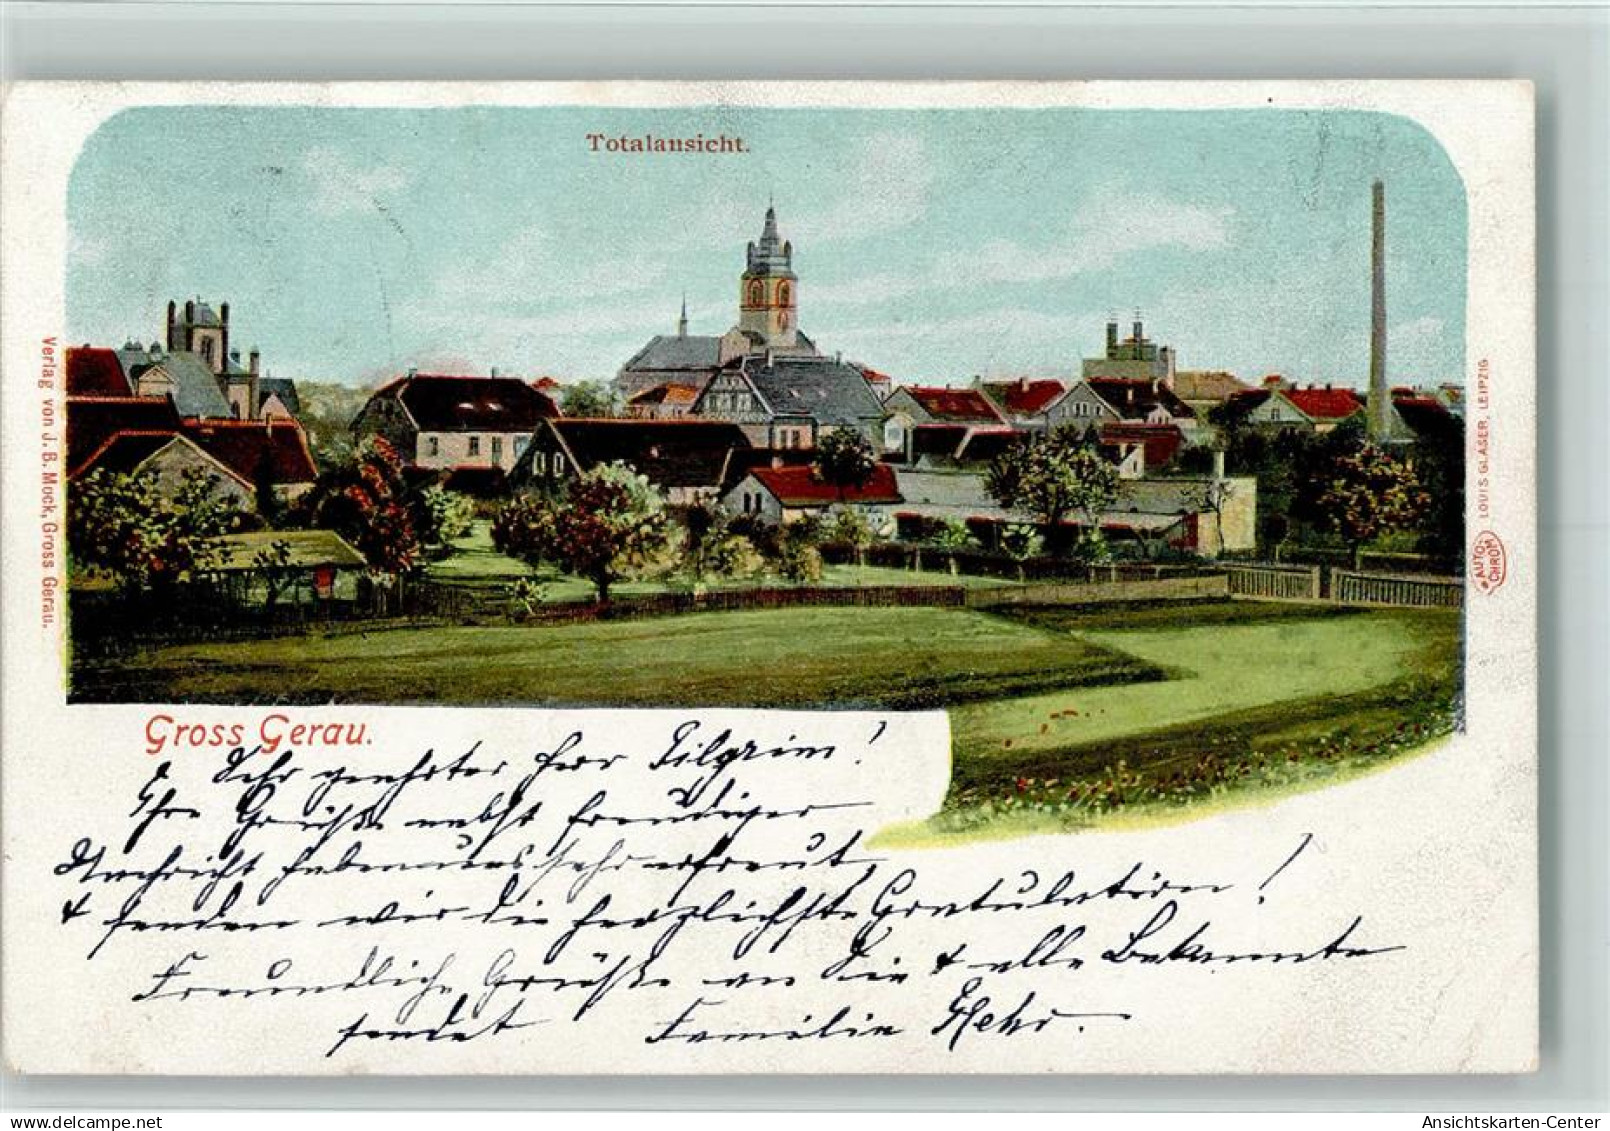 Totalansicht.
Verlag von J. B. Mock, Gross Gerau.
LOUIS GLASER, LEIPZIG
AUTO
CHROM
Gross Gerau.
Sehr geehrter Herr Pilgrim!
Ihre Grüße nebst freudiger
Nachricht haben uns sehr erfreut,
& senden wir die herzlichste Gratulation!
Freundliche Grüße an Sie & alle Bekannte
sendet Familie
delcampe.net
Ansichtskarten-Center